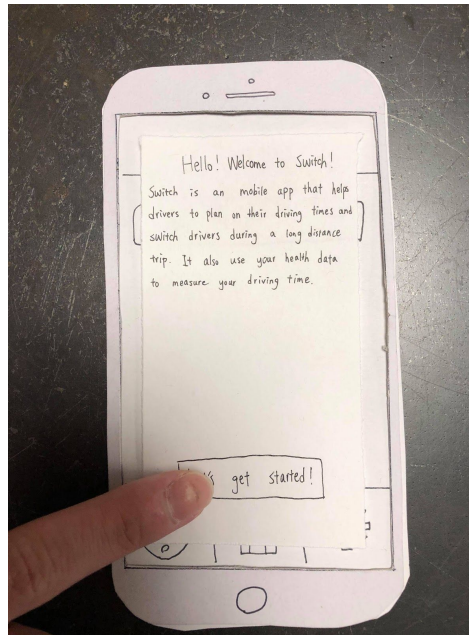 Hello! Welcome to Switch!
Switch is an mobile app that helps
drivers to plan on their driving times and
switch drivers during a long distance
trip. It also use your health data
to measure your driving time.
get started!